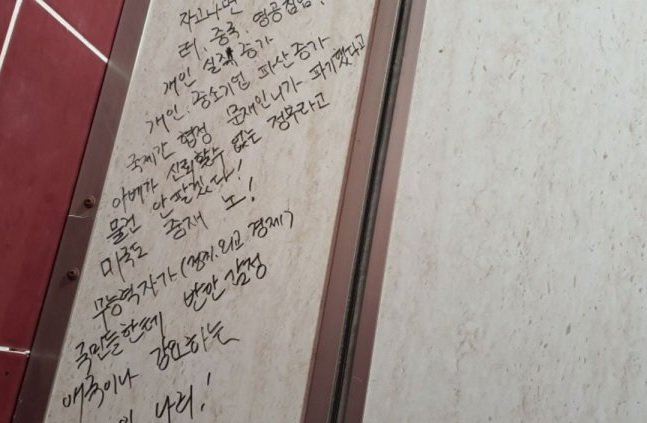 자고나면
러, 중국, 영공침범!
개인 실직 증가
개인, 중소기업 파산증가
국제간 협정 문재인니가 파기했다고
아베가 신뢰할수 없는 정부라고
물건 안팔겠다!
미국도 중재 노!
무능역자가 (정치.외교.경제)
국민들한테 반안감정
애국이나 강요하는
나라!